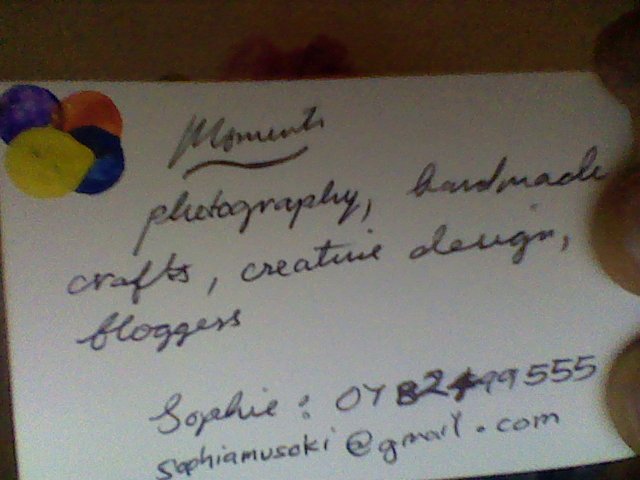 Moments
photography, handmade
crafts, creative design,
bloggers
Sophie : 0782499555
sophiamusoki@gmail.com